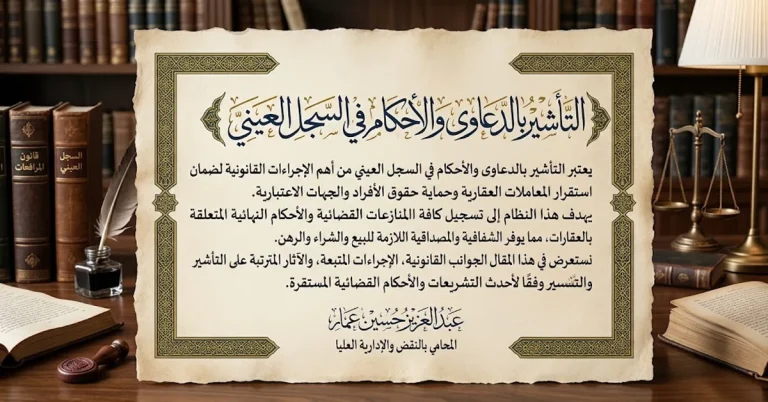 التَّأشيرُ بالدَّعاوى والأحكام في السّجل العينيّ
يعتبر التأشير بالدعاوى والأحكام في السجل العيني من أهم الإجراءات القانونية لضمان
استقرار المعاملات العقارية وحماية حقوق الأفراد والجهات الاعتبارية.
يهدف هذا النظام إلى تسجيل كافة المنازعات القضائية والأحكام النهائية المتعلقة
بالعقارات، مما يوفر الشفافية والمصداقية اللازمة للبيع والشراء والرهن.
نستعرض في هذا المقال الجوانب القانونية، الإجراءات المتبعة، والآثار المترتبة على التأشير
وفقًا لأحدث التشريعات والأحكام القضائية المستقرة.
عبد العزيز حسين عمار
المحامي بالنقض والإدارية العليا
قانون
المرافعات
السجل
العيني